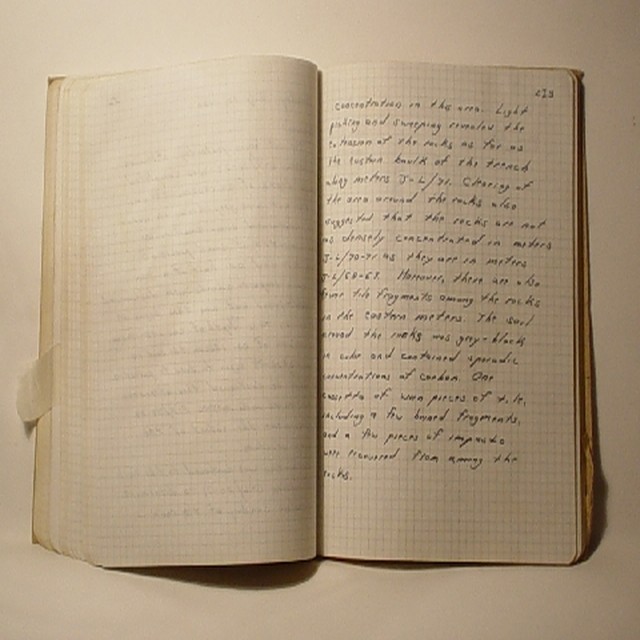 213
concentration in this area. Light
picking and sweeping revealed the
extension of the rocks as far as
the eastern baulk of the trench
along meters J-L/71. Clearing of
the area around the rocks also
suggested that the rocks are not
as densely concentrated in meters
J-L/70-71 as they are in meters
J-L/68-69. Moreover, there are also
fewer tile fragments among the rocks
in the eastern meters. The soil
around the rocks was grey-black
in color and contained sporadic
concentrations of carbon. One
cassetta of worn pieces of tile,
including a few burned fragments,
and a few pieces of impasto
were recovered from among the
rocks.